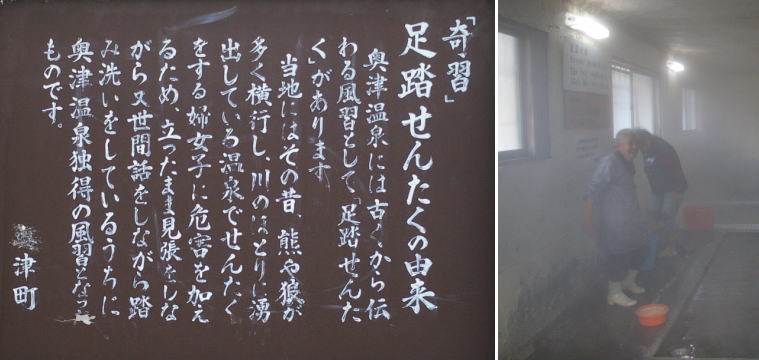 「奇習」
足踏せんたくの由来
奥津温泉には古くから伝
わる風習として、「足踏せんた
く」があります
当地にはその昔、熊や狼が
多く横行し、川のほとりに湧
出している温泉でせんたく
をする婦女子に危害を加え
るため、立ったまま見張をしな
がら又世間話をしながら踏
み洗いをしているうちに
奥津温泉独得の風習となった
ものです。
津町